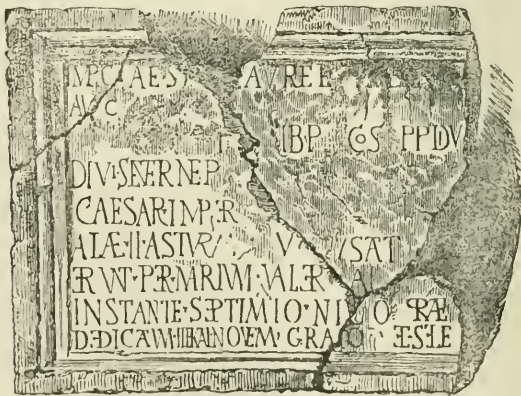 IMP CAES AVREL
AVG
IB P COS P P DV
DIVI SEVER NEP
CAESAR IMPER
ALAE II ASTVR V SAT
ERVNT PER MARIVM VALER
INSTANTE SEPTIMIO NI O PRAE
DEDICATVM III KAL NOVEM GRATO ET SELE